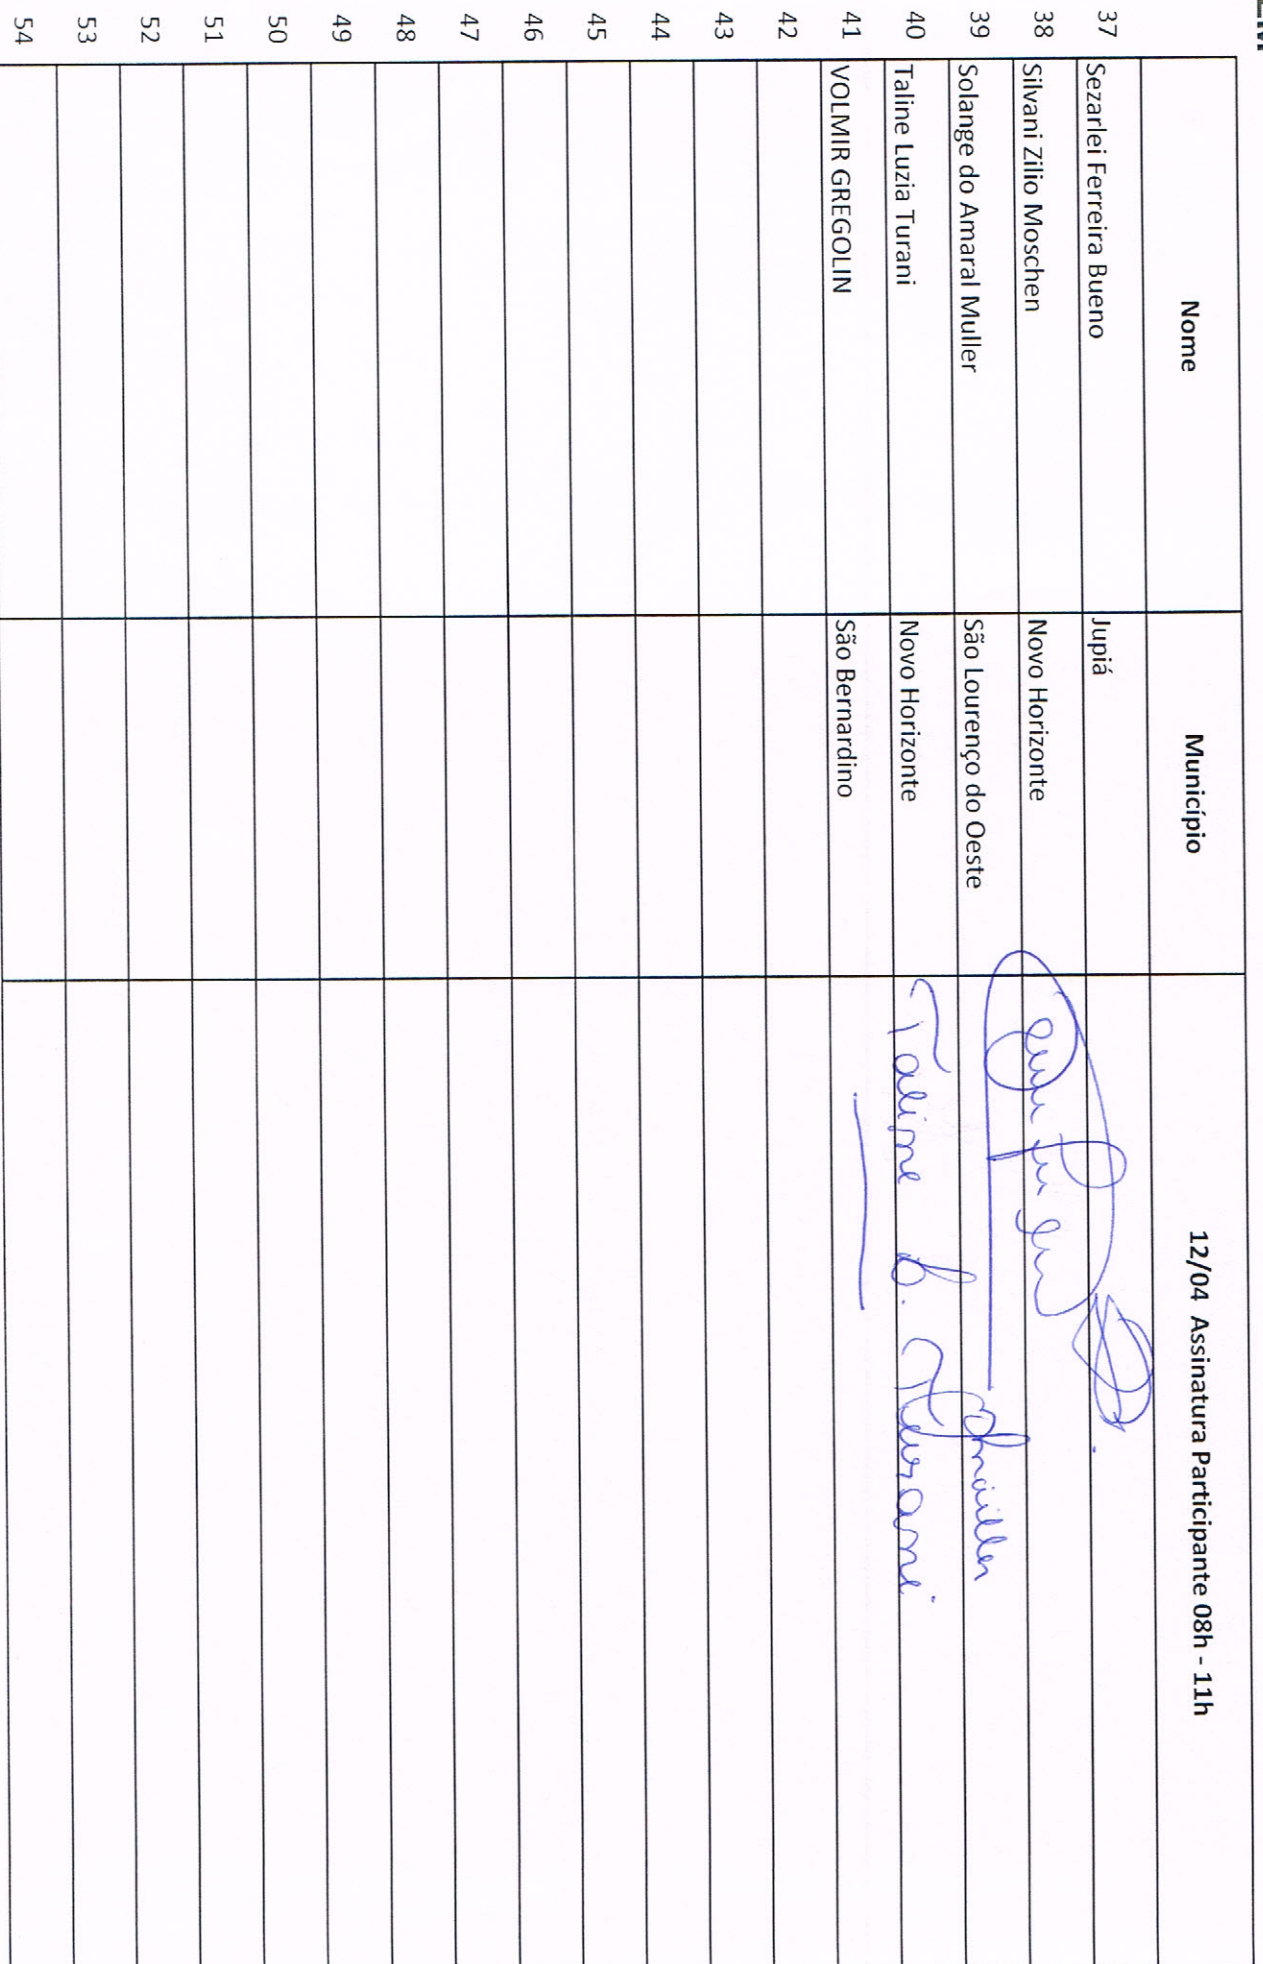 Nome Município 12/04 Assinatura Participante 08h - 11h
37 Sezarlei Ferreira Bueno Jupiá
38 Silvani Zilio Moschen Novo Horizonte
39 Solange do Amaral Muller São Lourenço do Oeste
40 Taline Luzia Turani Novo Horizonte Taline L. Turani
41 VOLMIR GREGOLIN São Bernardino
42
43
44
45
46
47
48
49
50
51
52
53
54